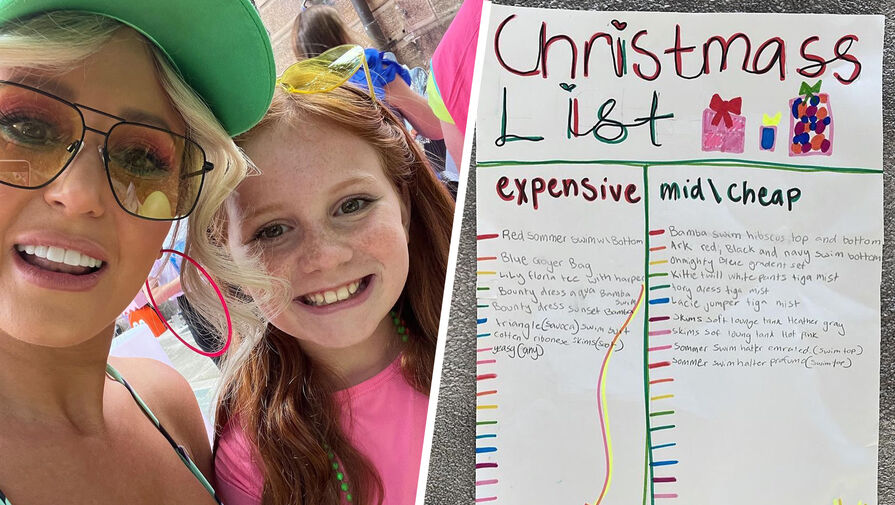 Christmass
List
expensive
mid\cheap
Red Sommer swim w\ Bottom
Blue Goyer Bag
Lily florin tee with harper
Bounty dress aqya Bamba
Bounty dress sunset Bamba
triangle (savaca) swim suit
cotten ribonese skims (sof)
yeasy (any)
Bamba swim hibiscus top and bottom
Ark red, Black and navy swim bottom
onmighty blue gradent set
Kitte twill white pants tiga mist
tory dress tiga mist
Lacie jumper tiga mist
Skims Soft lounge tank Heather gray
skims sof loung tank Hot pink
Sommer swim halter emraled (swim top)
Sommer swim halter profund (swim top)